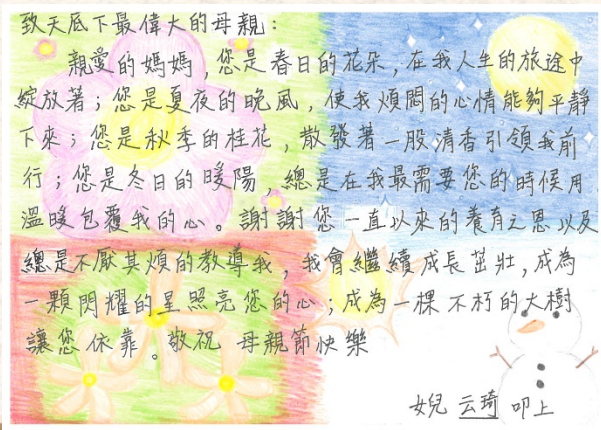 致天底下最偉大的母親：
親愛的媽媽，您是春日的花朵，在我人生的旅途中
綻放著；您是夏夜的晚風，使我煩悶的心情能夠平靜
下來；您是秋季的桂花，散發著一股清香引領我前
行；您是冬日的暖陽，總是在我最需要您的時候用
溫暖包覆我的心。謝謝您一直以來的養育之恩以及
總是不厭其煩的教導我，我會繼續成長茁壯，成為
一顆閃耀的星照亮您的心；成為一棵不朽的大樹
讓您依靠。敬祝 母親節快樂
女兒 云琦 叩上